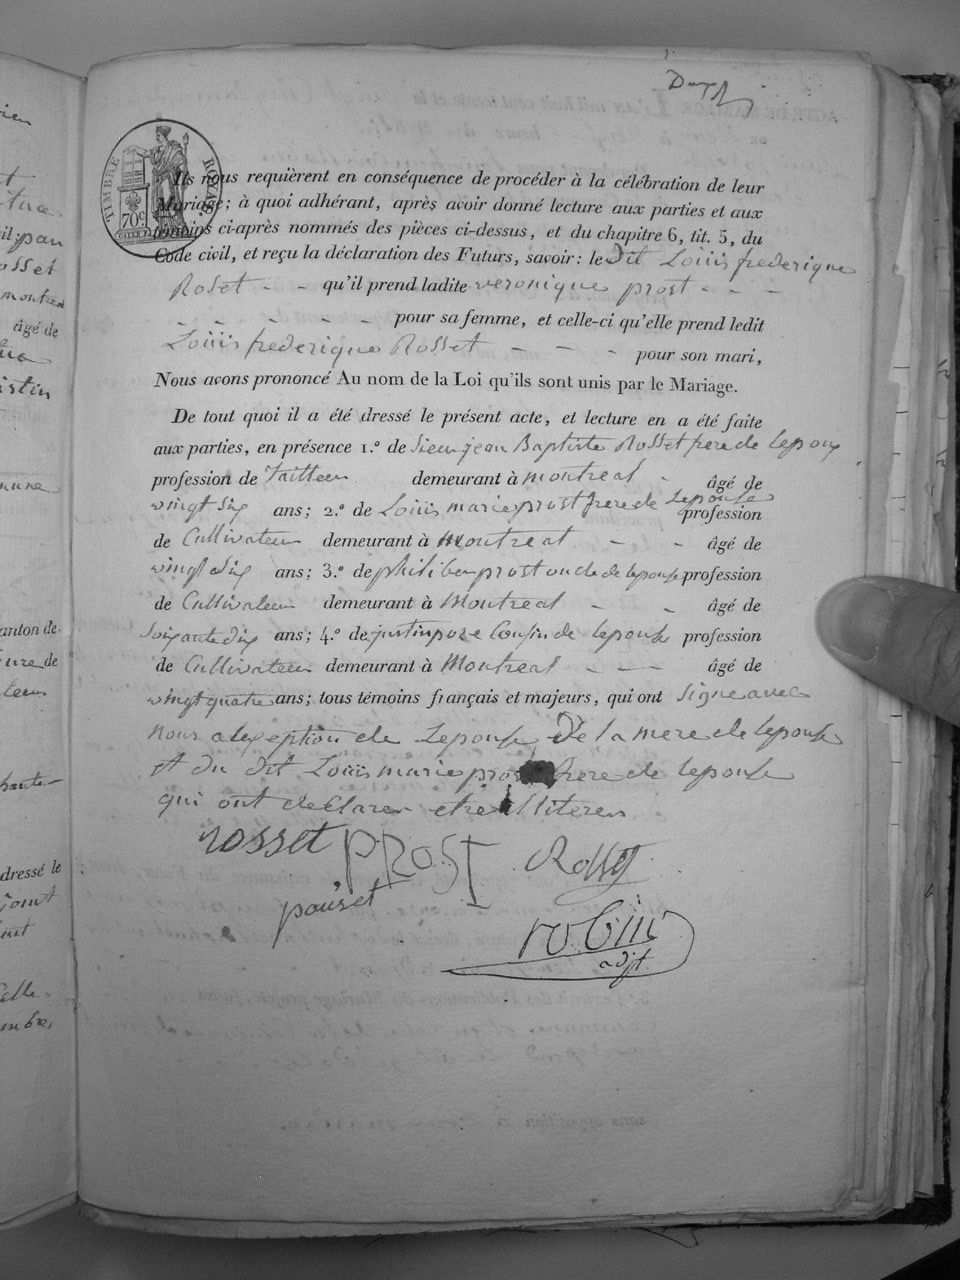 TIMBRE ROYAL
70c
Ils nous requièrent en conséquence de procéder à la célébration de leur
Mariage; à quoi adhérant, après avoir donné lecture aux parties et aux
témoins ci-après nommés des pièces ci-dessus, et du chapitre 6, tit. 5, du
Code civil, et reçu la déclaration des Futurs, savoir: le dit Louiis frederique
Roset - - qu'il prend ladite veronique prost - - -
- - - - - - pour sa femme, et celle-ci qu'elle prend ledit
Louiis frederique Rosset - - - pour son mari,
Nous avons prononcé Au nom de la Loi qu'ils sont unis par le Mariage.
De tout quoi il a été dressé le présent acte, et lecture en a été faite
aux parties, en présence 1.º de Sieur jean Baptiste Rosset frere de lepoux
profession de Tailleur demeurant à montreal - âgé de
vingt six ans; 2.º de Louiis marie prost frere de Lepouse profession
de Cultivateur demeurant à Montreal - - âgé de
vingt six ans; 3.º de philiber prost oncle de lepouse profession
de Cultivateur demeurant à Montreal - - âgé de
Soixante dix ans; 4.º de justin poze Cousin de lepouse profession
de Cultivateur demeurant à Montreal - - - âgé de
vingt quatre ans; tous témoins français et majeurs, qui ont Signe avec
Nous a lexception de Lepouse De la mere de lepouse
et du dit Louiis marie prost frere de lepouse
qui ont declarer etre illiteres
rosset PROST Rosset
robin
adjt